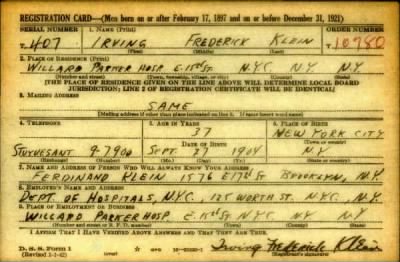 REGISTRATION CARD—(Men born on or after February 17, 1897 and on or before December 31, 1921)
SERIAL NUMBER 1. NAME (Print) ORDER NUMBER
T 407 IRVING FREDERICK KLEIN 10780
(First) (Middle) (Last)
2. PLACE OF RESIDENCE (Print)
WILLARD PARKER HOSP. E. 15 ST. N.Y.C. N.Y. N.Y.
(Number and street) (Town, township, village, or city) (County) (State)
[THE PLACE OF RESIDENCE GIVEN ON THE LINE ABOVE WILL DETERMINE LOCAL BOARD
JURISDICTION; LINE 2 OF REGISTRATION CERTIFICATE WILL BE IDENTICAL]
3. MAILING ADDRESS
SAME
[Mailing address if other than place indicated on line 2. If same insert word same]
4. TELEPHONE 5. AGE IN YEARS 6. PLACE OF BIRTH
37 NEW YORK CITY
DATE OF BIRTH (Town or county)
STUYVESANT 9-7900 SEPT. 1904 NY
(Exchange) (Number) (Mo.) (Day) (Yr.) (State or country)
7. NAME AND ADDRESS OF PERSON WHO WILL ALWAYS KNOW YOUR ADDRESS
FERDINAND KLEIN 1576 E 17 ST BROOKLYN, N.Y.
8. EMPLOYER'S NAME AND ADDRESS
DEPT. OF HOSPITALS, N.Y.C., 125 WORTH ST. N.Y.C. N.Y.
9. PLACE OF EMPLOYMENT OR BUSINESS
WILLARD PARKER HOSP. E. 15 ST. N.Y.C. NY. N.Y.
(Number and street or R. F. D. number) (Town) (County) (State)
I AFFIRM THAT I HAVE VERIFIED ABOVE ANSWERS AND THAT THEY ARE TRUE.
D. S. S. Form 1
(Revised 1-1-42) Irving Frederick Klein
(Registrant's signature)